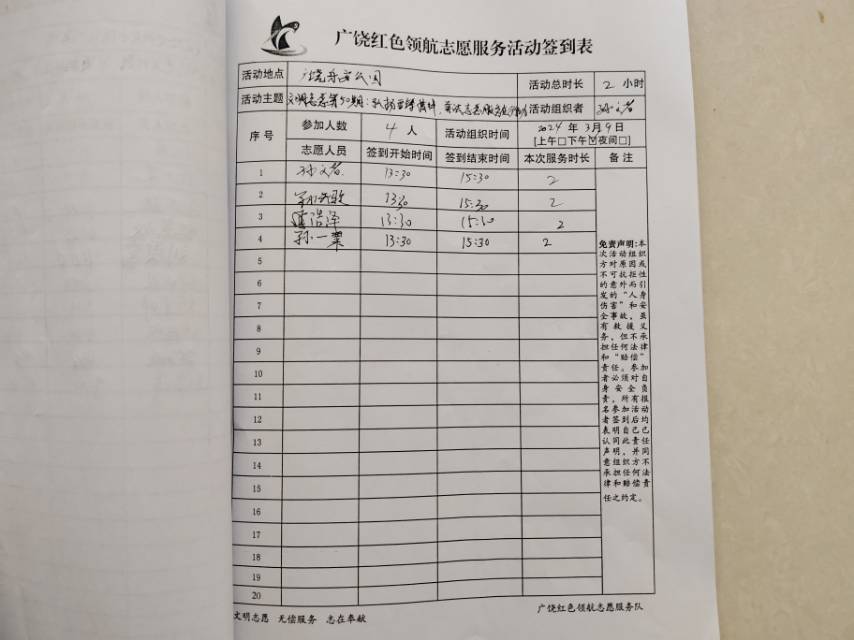 广饶红色领航志愿服务活动签到表
活动地点 广饶 公园 活动总时长 2 小时
活动主题 文明志愿第50期：弘扬雷锋精神, 活动组织者 孙文者
序号 参加人数 4人 活动组织时间 2024年3月9日
[上午□下午☑夜间□]
志愿人员 签到开始时间 签到结束时间 本次服务时长 备注
1 孙文者 13:30 15:30 2
2 13:30 15:30 2
3 浩泽 13:30 15:30 2
4 孙一 13:30 15:30 2
5
6
7
8
9
10
11
12
13
14
15
16
17
18
19
20
免责声明:本
次活动组织
方对原因或
不可抗拒性
的意外而引
发的“人身
伤害”和安
全事故，虽
有救援义
务，但不承
担任何法律
和“赔偿”
责任。参加
者必须对自
身安全负
责，所有报
名参加活动
者签到后均
表明自己已
认同此责任
声明，并同
意组织方不
承担任何法
律和赔偿责
任之约定。
文明志愿 无偿服务 志在奉献
广饶红色领航志愿服务队